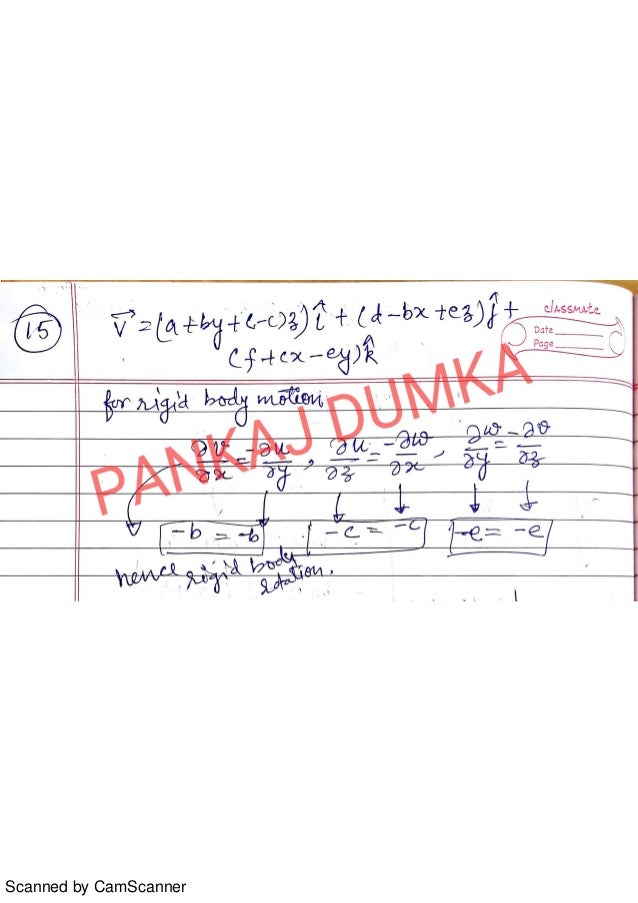 15
V⃗ = (a+by+(-c)z) î + (d-bx+ez) ĵ +
(f+cx-ey) k̂
classmate
Date
Page
for rigid body motion,
∂v/∂x = -∂u/∂y , ∂u/∂z = -∂w/∂x , ∂w/∂y = -∂v/∂z
-b = -b -c = -c -e = -e
hence rigid body
rotation.
PANKAJ DUMKA
Scanned by CamScanner